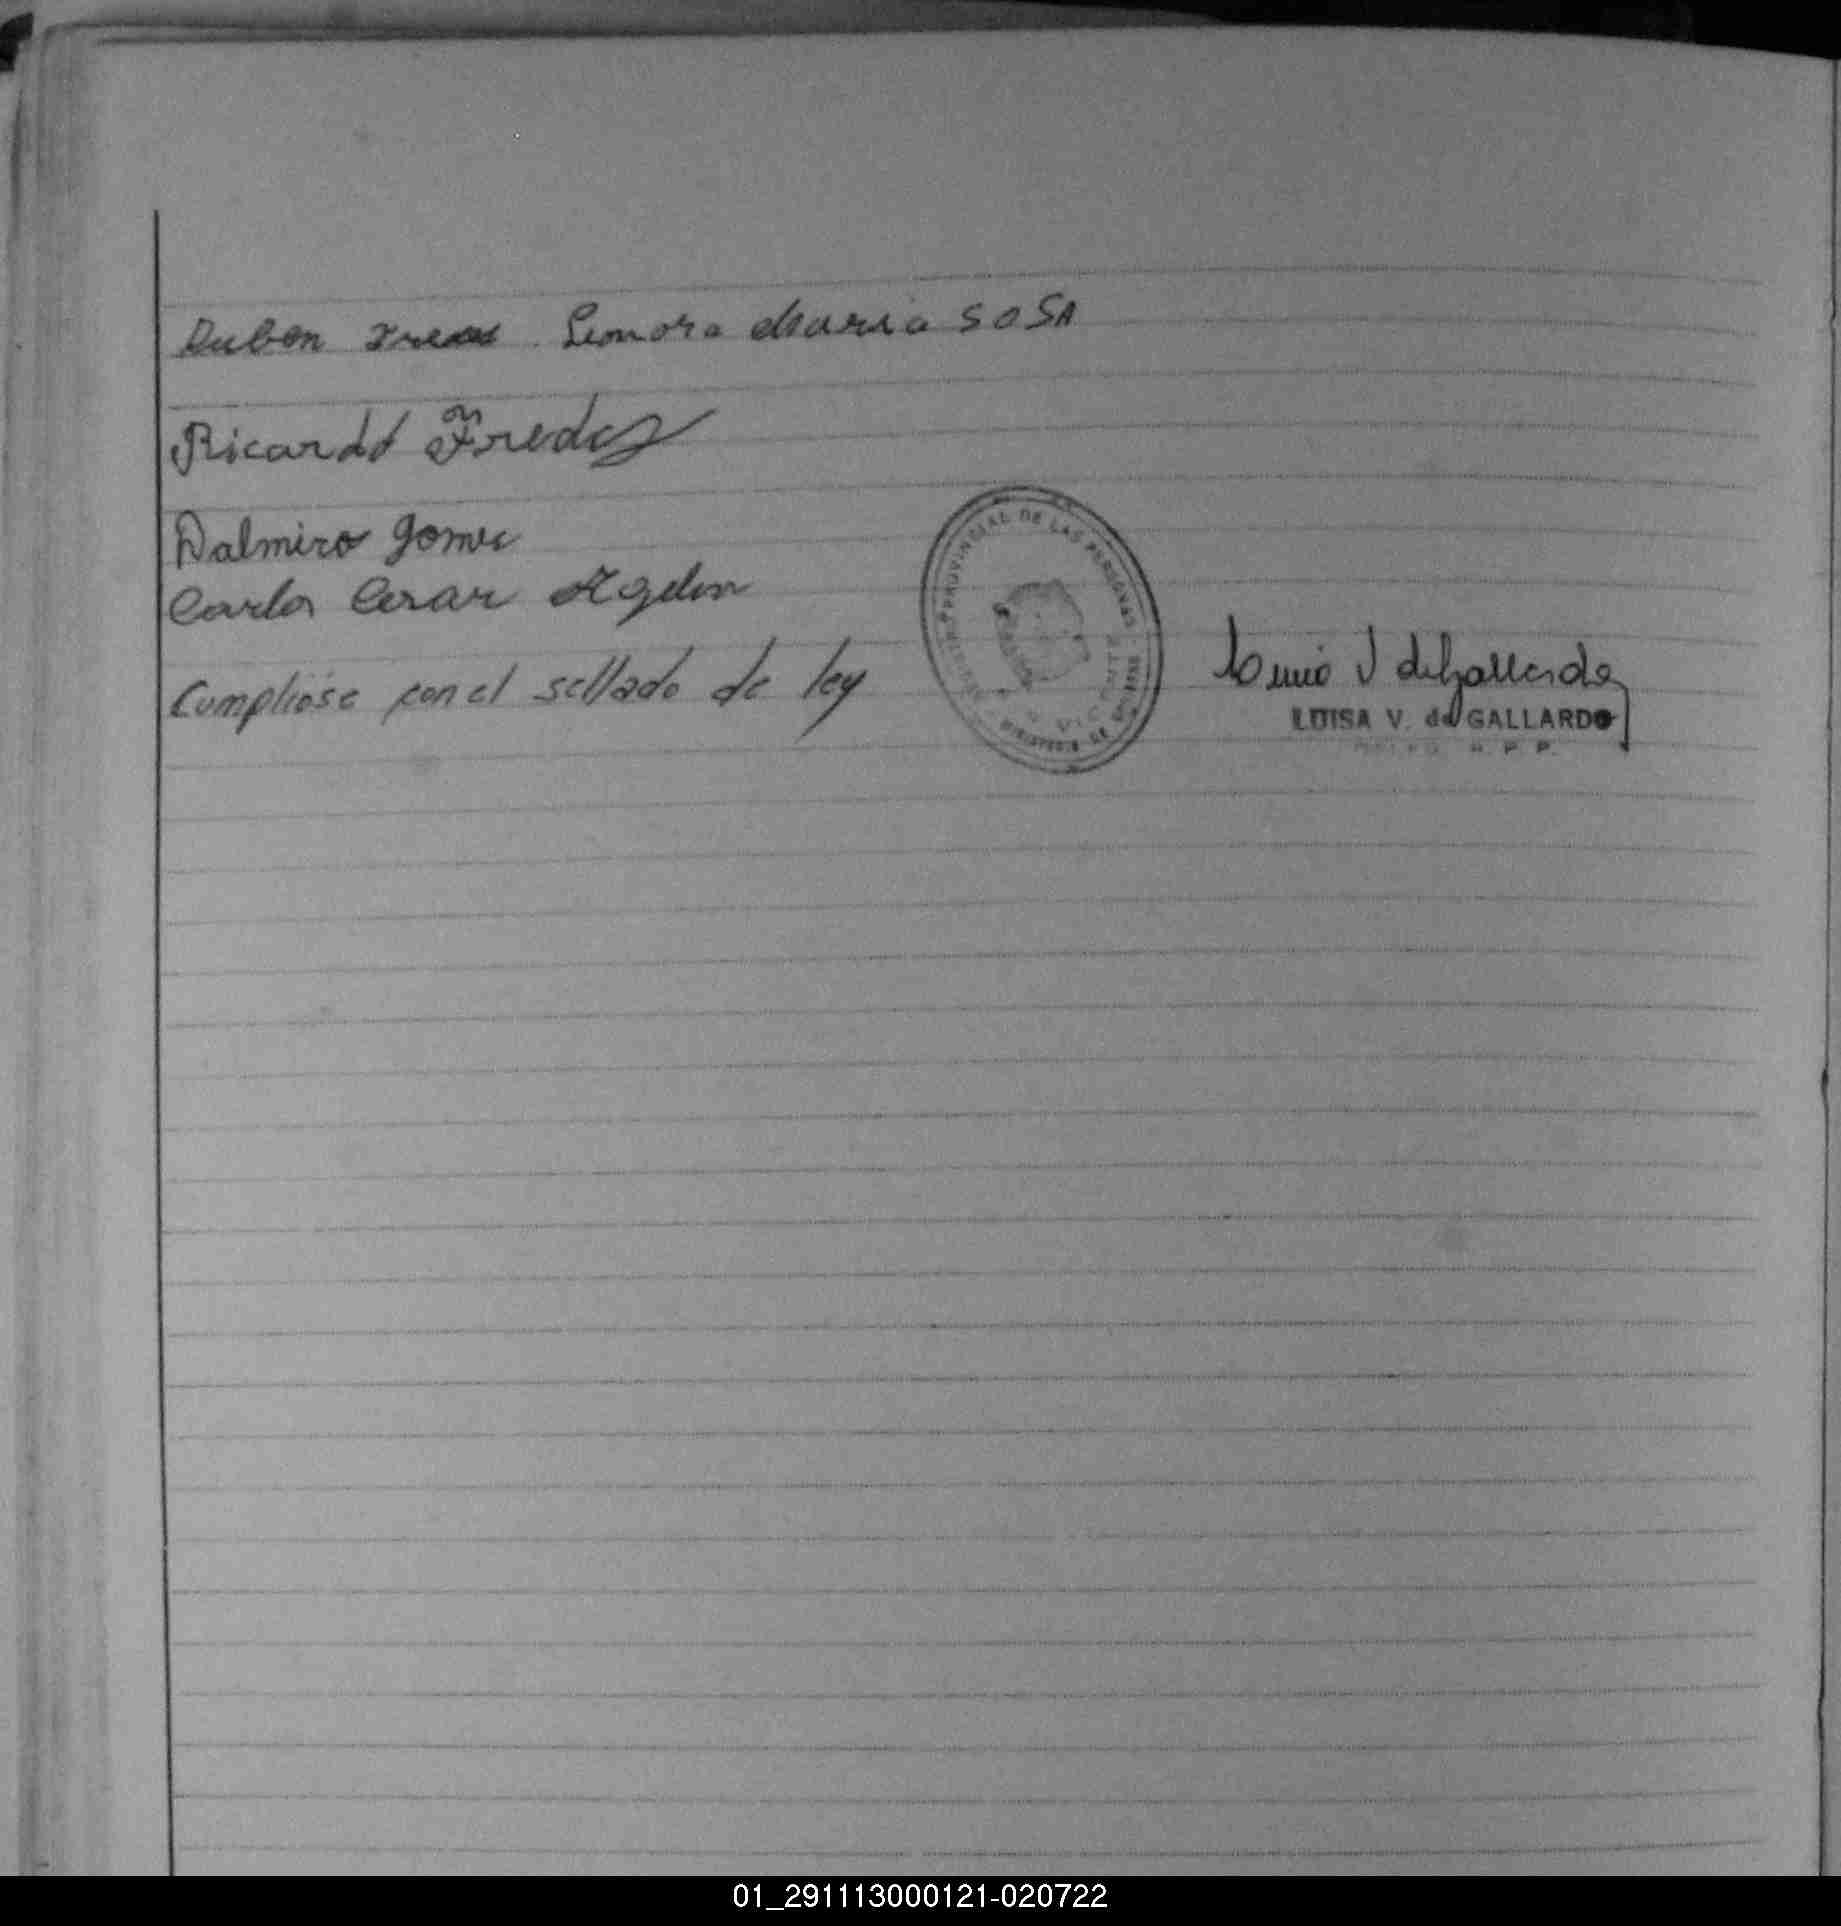 Ruben Leonora Maria SOSA
Ricardo Fredes
Dalmiro Gomez
Carlos Cesar
Cumplióse con el sellado de ley
PROVINCIAL DE LAS PERSONAS
MINISTERIO DE
V de Gallardo
LUISA V. de GALLARDO
R. P. P.
01_291113000121-020722